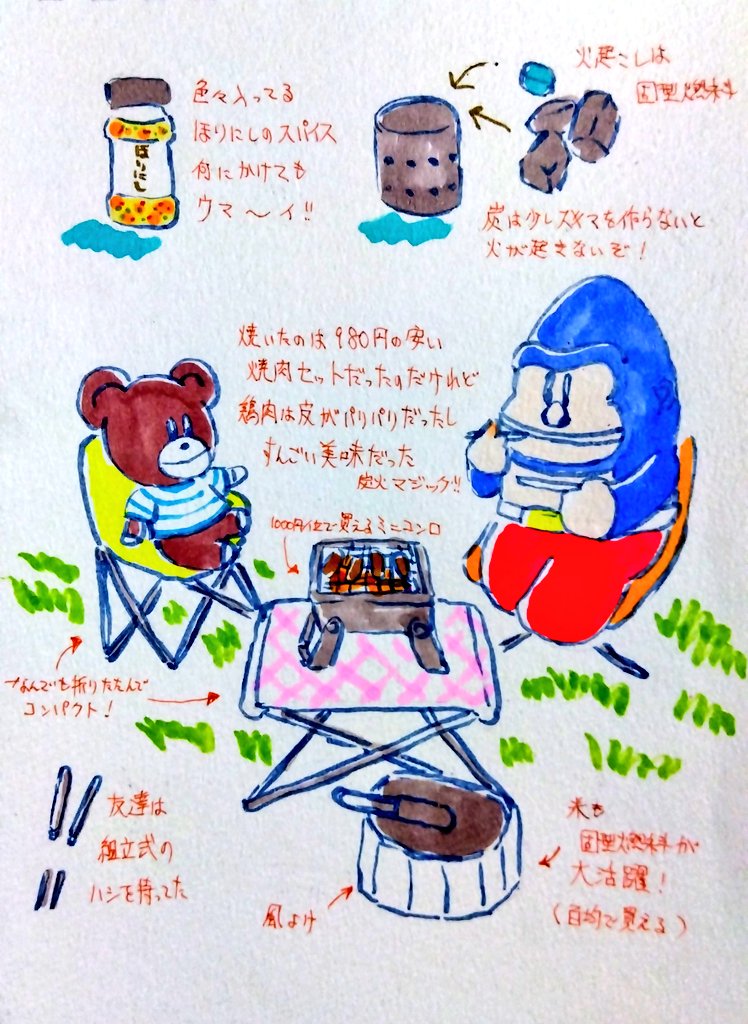 色々入ってる
ほりにしのスパイス
何にかけても
ウマ〜イ!!
ほりにし
火起こしは
固型燃料
炭は少しスキマを作らないと
火が起きないぞ!
焼いたのは980円の安い
焼肉セットだったのだけれど
鶏肉は皮がパリパリだったし
すんごい美味だった
炭火マジック!!
1000円位で買えるミニコンロ
なんでも折りたたんで
コンパクト!
友達は
組立式の
ハシを持ってた
風よけ
米も
固型燃料が
大活躍!
(百均で買える)